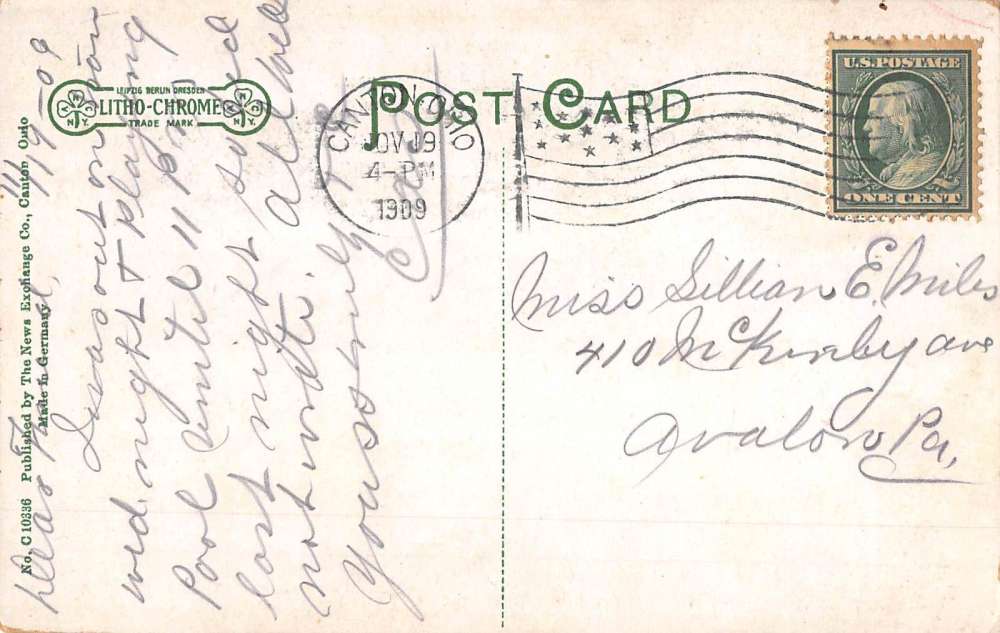 LEIPZIG BERLIN DRESDEN
LITHO-CHROME
TRADE MARK
N.Y. N.Y.
POST CARD
CANTON, OHIO
NOV 19
4-PM
1909
U.S. POSTAGE
ONE CENT
Miss Lillian E. Miles
410 McKinley ave
Avalon Pa,
No. C 10336 Published by The News Exchange Co., Canton, Ohio
Made in Germany
11/19-09
Dear Friend,
I was out on
wed. night & playing
Pool until 11 P.
last night so we
not write. Ad
Yours truly